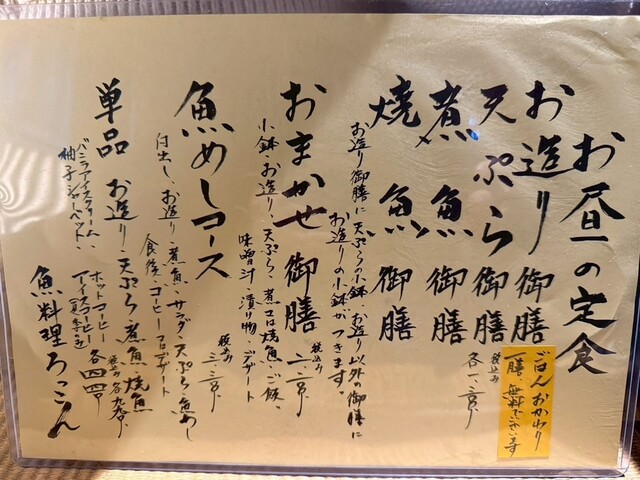 お昼の定食
お造り御膳
天ぷら御膳
煮魚御膳
焼魚御膳
税込み
各一、
ごはんおかわり
一膳、無料でございます
お造り御膳に天ぷらの小鉢、お造り以外の御膳に
お造りの小鉢がつきます。
おまかせ御膳
税込み
小鉢、お造り、天ぷら、煮又は焼魚、ご飯、
味噌汁、漬け物、デザート
魚めしコース
税込み
付出し、お造り、煮魚、サラダ、天ぷら、魚めし
食後、コーヒー又はデザート
単品 お造り、天ぷら、煮魚、焼魚
税込み各
バニラアイスクリーム、
柚子シャーベット、
ホットコーヒー
アイスコーヒー
各四四〇
魚料理ろっこん